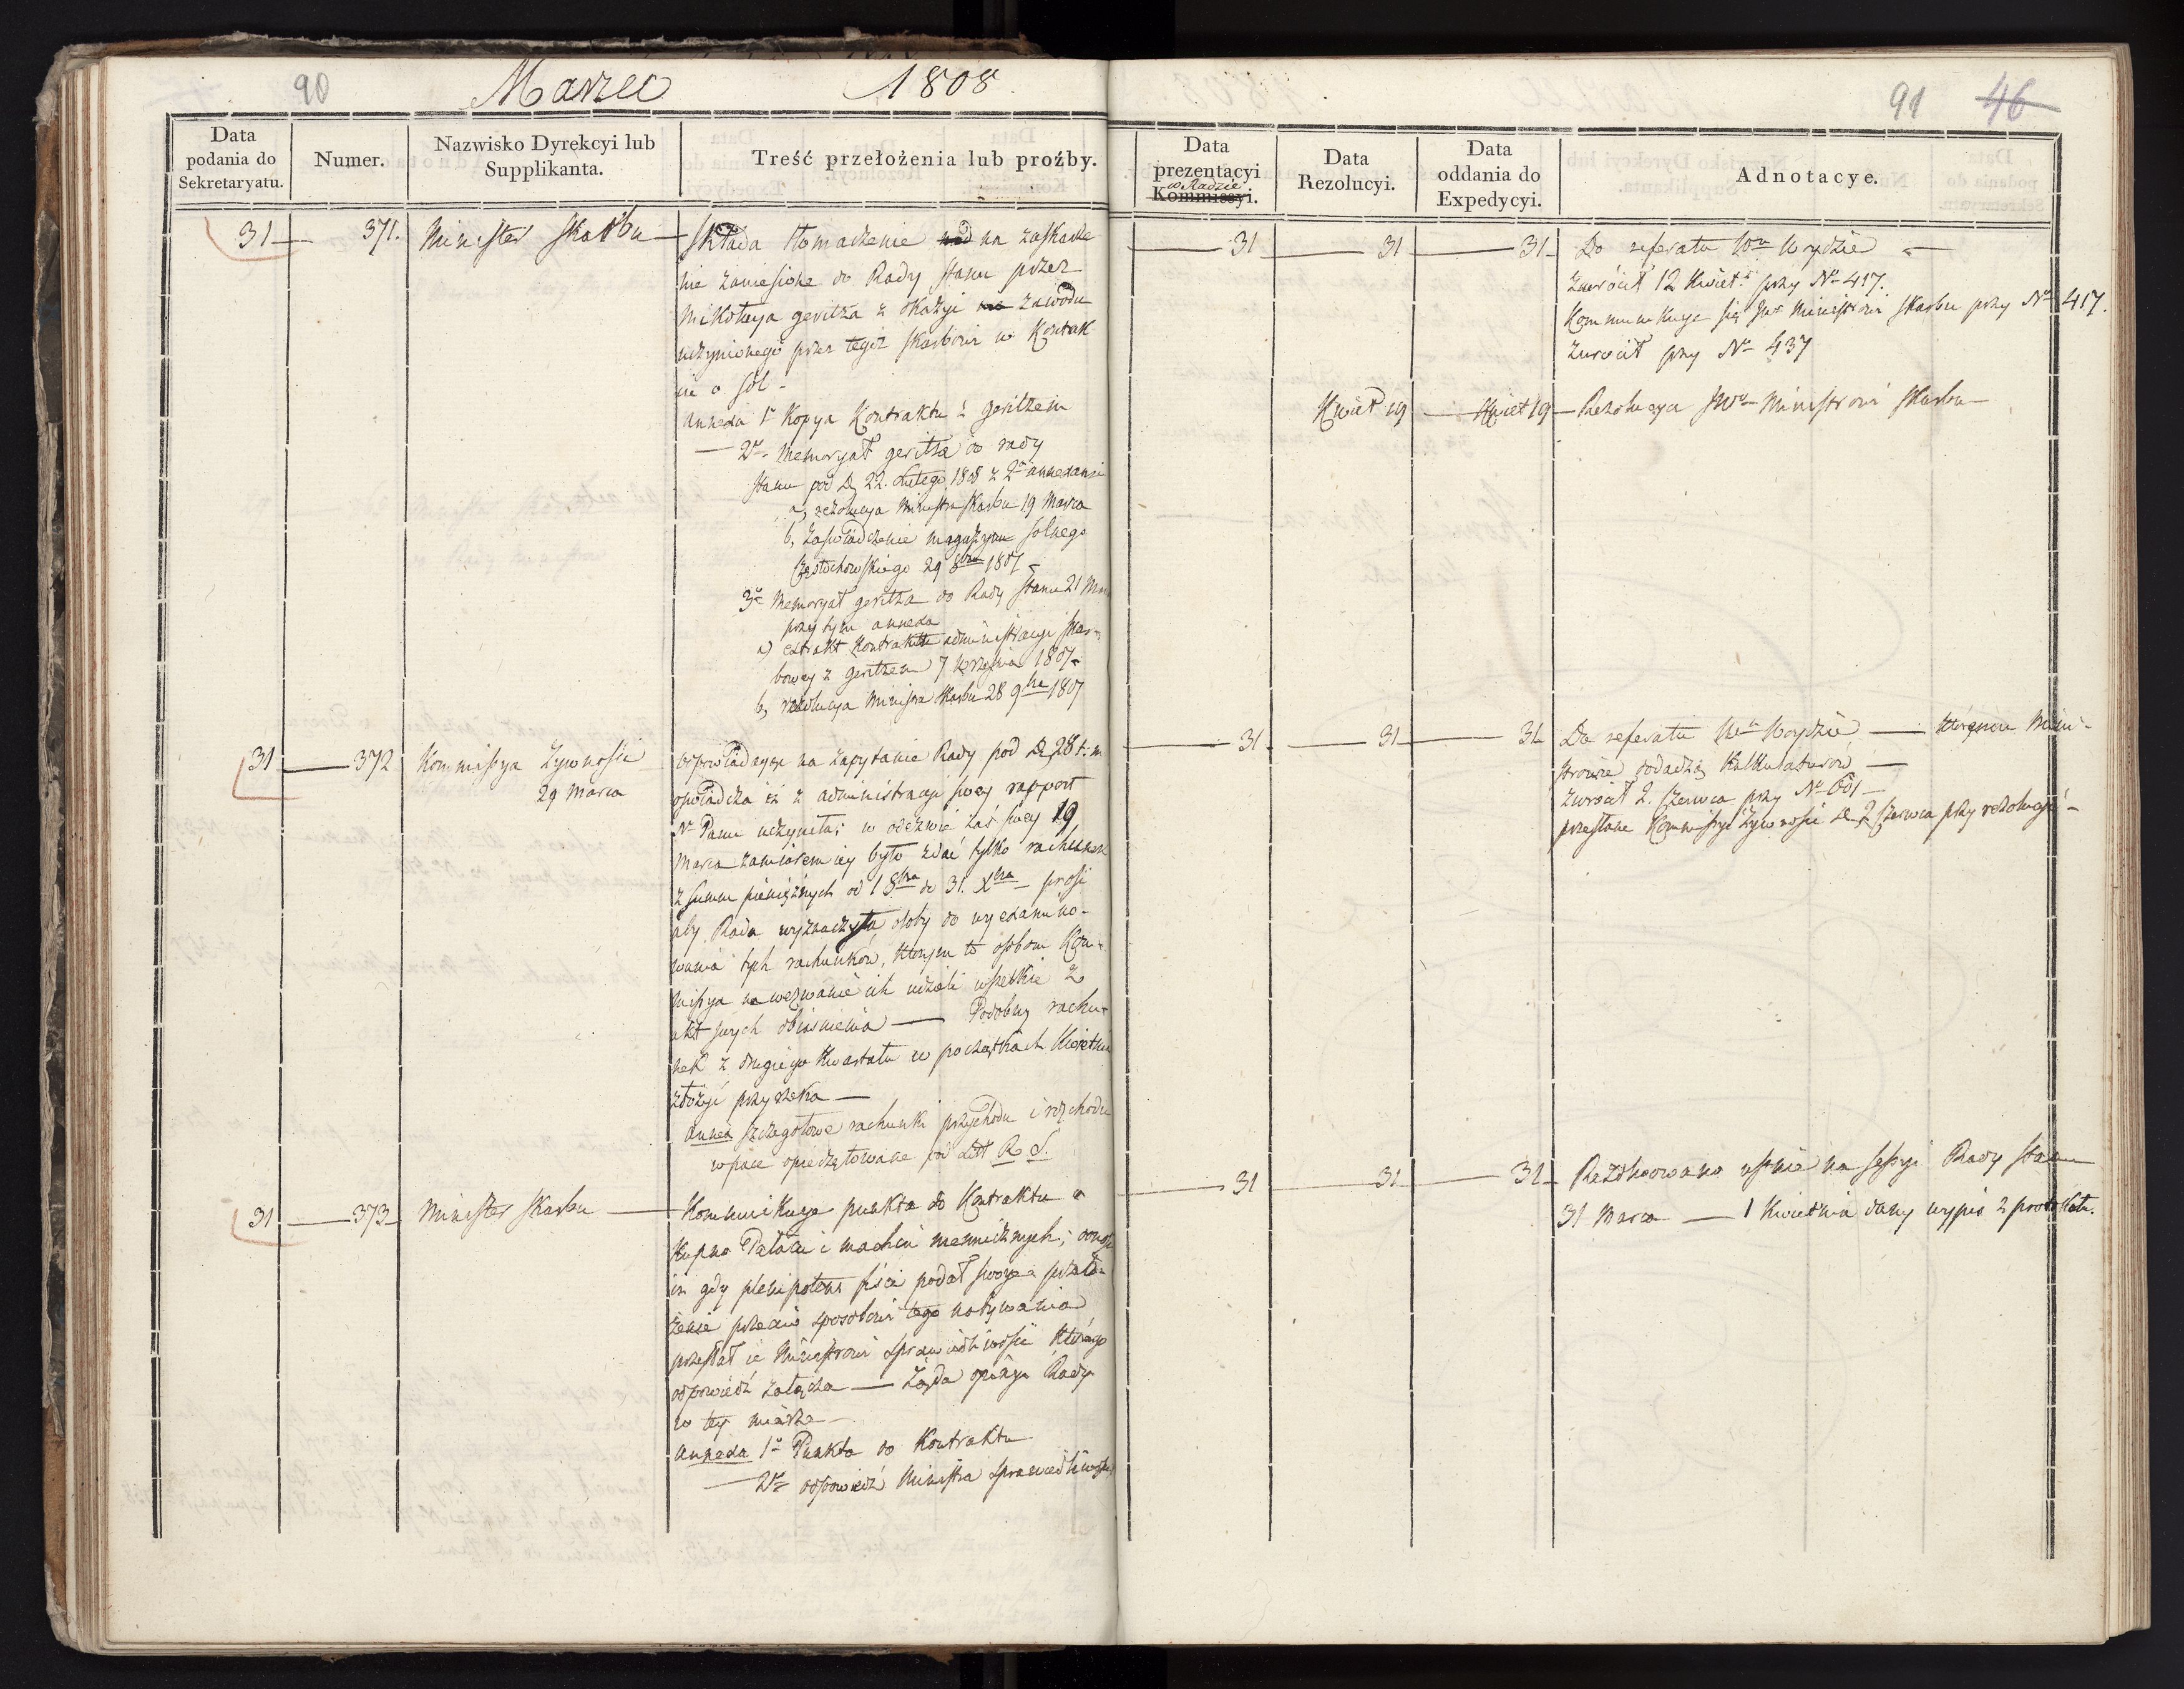 90
Marzec 1808.
91 46
Data podania do Sekretaryatu.
Numer.
Nazwisko Dyrekcyi lub Supplikanta.
Treść przełożenia lub proźby.
Data prezentacyi w Radzie Kommissyi.
Data Rezolucyi.
Data oddania do Expedycyi.
Adnotacye.
31 371. Minister Skarbu
Składa tłomaczenie nad na zaskarże
nie zaniesione do Rady Stanu przez
Mikołaya Geritza z okazyi zawodu
uczynionego przez tegoż Skarbowi w Kontrak
cie o sól -
Annexa 1o Kopya Kontraktu z Geritzem
— 2o Memoryał Geritza do rady
Stanu pod D. 22. Lutego 1808 z 2ma annexami
a, rezolucya Ministra Skarbu 19 Marca
b, zaświadczenie magazynu solnego
Częstochowskiego 29 8bra 1807
3o Memoryał Geritza do Rady Stanu 21 Mar
przy tym annexa
a) extrakt Kontraktu administracyi Skar-
bowey z Geritzem 7 Września 1807
b, rezolucya Ministra Skarbu 28 9bra 1807
31 31 31
Do referatu Wu Woydzie
zwrócił 12 Kwiet. przy No 417.
Kommunikuje się JW Ministrowi Skarbu przy No 417.
zwrócił przy No 437
Kwiet 19 Kwiet 19 Rezolucya JWu Ministrowi Skarbu
31 372 Kommissya Żywności
29 Marca
odpowiadając na zapytanie Rady pod D. 28 t. m.
oświadcza iż z administracyi swey rapport
N. Panu uczyniła; w odezwie zaś swey 19
Marca zamiarem iey było zdać tylko rachunek
z summ pieniężnych od 1 8bra do 31. Xbra — prosi
aby Rada wyznaczyła osoby do wyexamino-
wania tych rachunków, którym to osobom Kom-
missya na wezwanie ich udzieli wszelkie z
akt swych obiaśnienia — Podobny rachu-
nek z drugiego Kwartału w początkach Kwietnia
złożyć przyrzeka —
Annex szczegółowe rachunki przychodu i rozchodu
w pace opieczętowane pod Litt R. S.
31 31 31
Do referatu Wu Woydzie — któremu Mini-
strowie dodadzą Kalkulatorów —
zwrócił 2. Czerwca przy No 601 —
przesłane Kommissyi Żywności D. 2 Czerwca przy rezolucyi —
31 373 Minister Skarbu
Kommunikuye punkta do Kontraktu o
Kupno Pałacu i machin menniczych;
gdy plenipotent podał swoje przeło-
żenie przeciw sposobowi tego nabywania
przesłał ie Ministrowi Sprawiedliwości którego
odpowiedź załącza — Żąda opinii Rady
w tey mierze —
Annexa 1o Punkta do Kontraktu
— 2o odpowiedź Ministra Sprawiedliwości
31 31 31
Rezolwowano ustnie na Sessyi Rady Stanu
31 Marca — 1 Kwietnia dany wypis z protokołu.